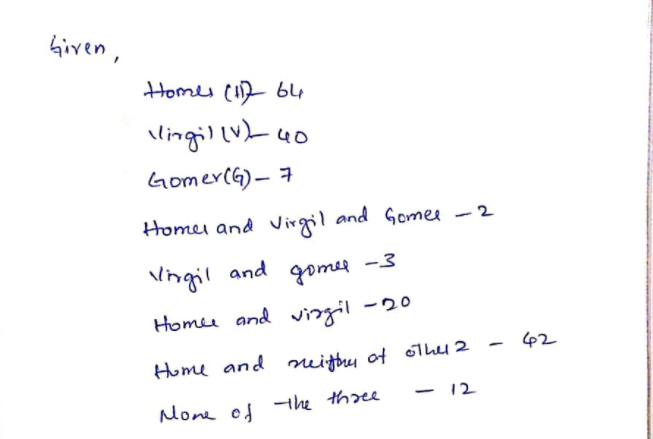 Given,
Homer (H) - 64
Virgil (V) - 40
Gomer(G) - 7
Homer and Virgil and Gomer - 2
Virgil and gomer - 3
Homer and virgil - 20
Home and neither of other 2 - 42
None of the three - 12